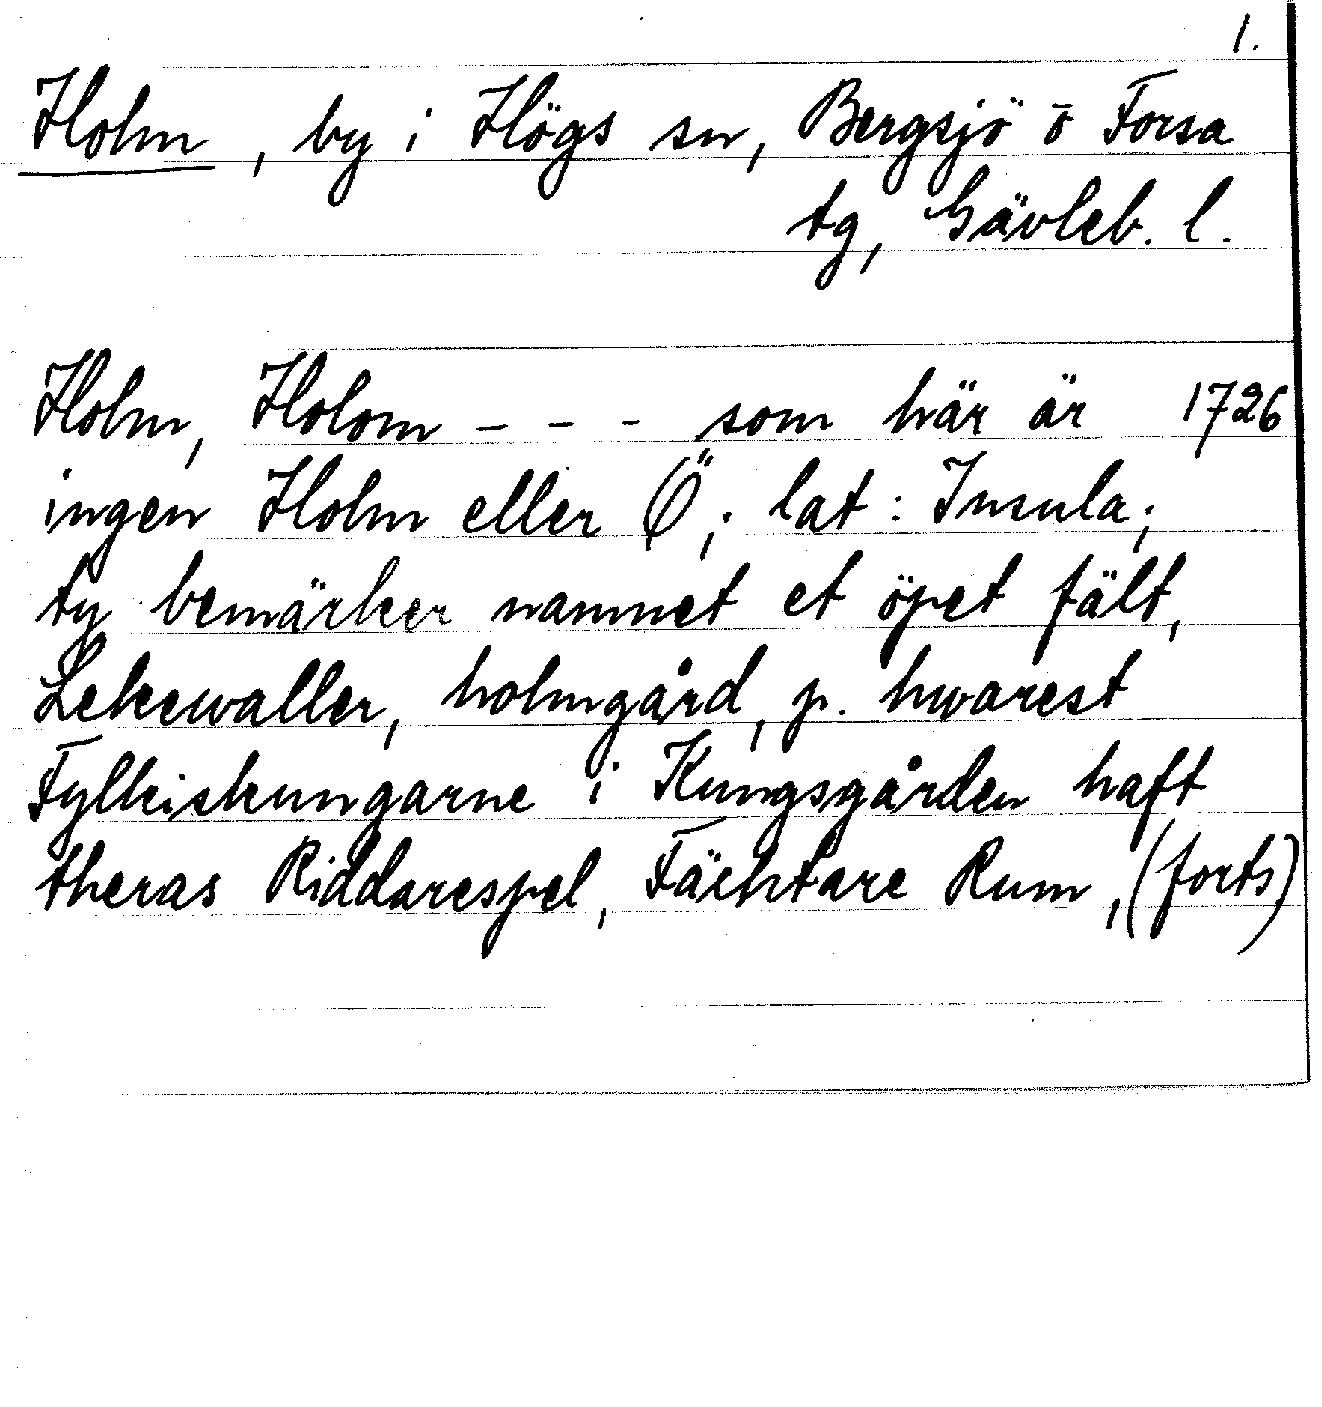 1.
Holm, by i Högs sn, Bergsjö o Forsa
tg, Gävleb. l.
Holm, Holom - - - som här är 1726
ingen Holm eller Ö; lat: Insula;
ty bemärker namnet et öpet fält,
Lekewaller, holmgård, p. hwarest
Fylkiskungarne i Kungsgården haft
theras Riddarespel, Fächtare Rum, (forts)